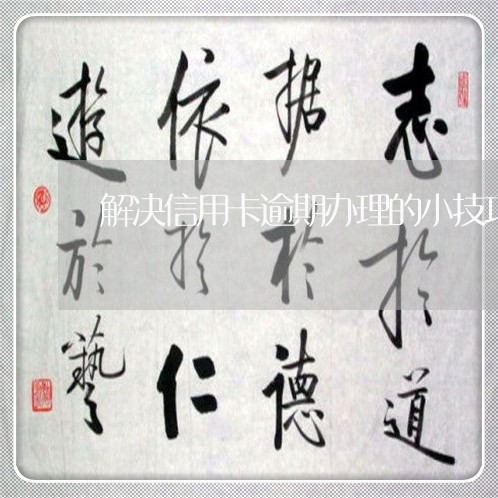 志於道
据於德
依於仁
遊於藝
解决信用卡逾期办理的小技